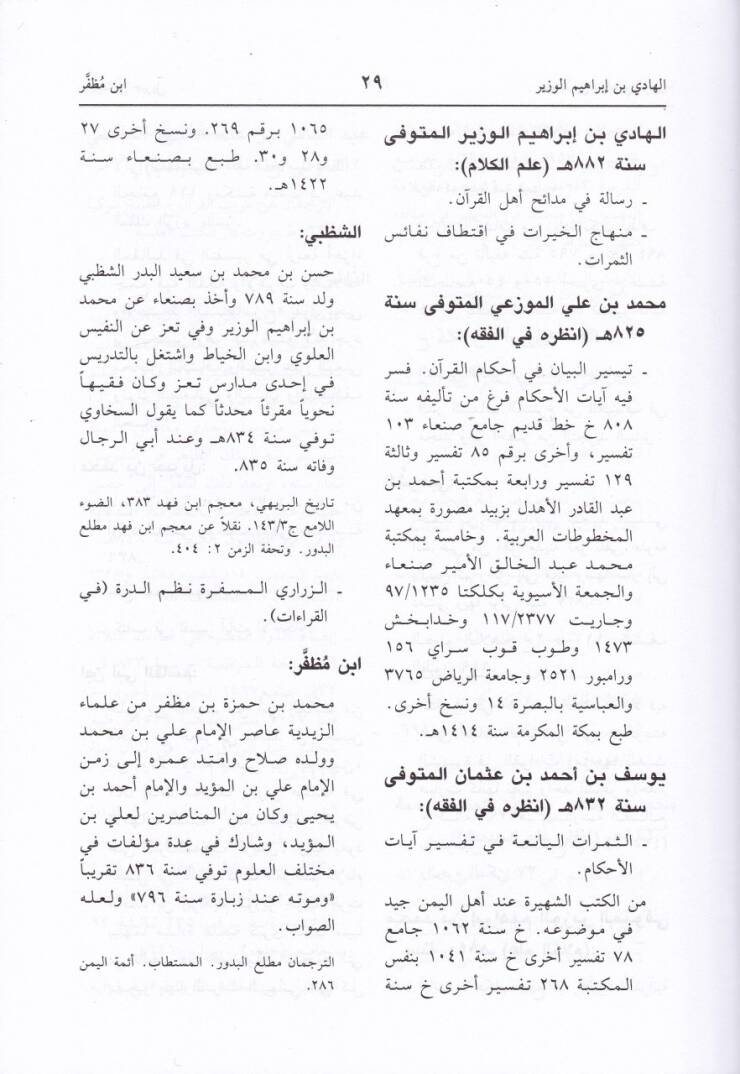 الهادي بن إبراهيم الوزير
٢٩
ابن مُظفَّر
الهادي بن إبراهيم الوزير المتوفى
سنة ٨٨٢هـ (علم الكلام):
ـ رسالة في مدائح أهل القرآن.
ـ منهاج الخيرات في اقتطاف نفائس
الثمرات.
محمد بن علي الموزعي المتوفى سنة
٨٢٥هـ (انظره في الفقه):
ـ تيسير البيان في أحكام القرآن. فسر
فيه آيات الأحكام فرغ من تأليفه سنة
٨٠٨ خ خط قديم جامع صنعاء ١٠٣
تفسير، وأخرى برقم ٨٥ تفسير وثالثة
١٢٩ تفسير ورابعة بمكتبة أحمد بن
عبد القادر الأهدل بزبيد مصورة بمعهد
المخطوطات العربية. وخامسة بمكتبة
محمد عبد الخالق الأمير صنعاء
والجمعة الأسيوية بكلكتا ٩٧/١٢٣٥
وجاريت ١١٧/٢٣٧٧ وخدابخش
١٤٧٣ وطوب قوب سراي ١٥٦
ورامبور ٢٥٢١ وجامعة الرياض ٣٧٦٥
والعباسية بالبصرة ١٤ ونسخ أخرى.
طبع بمكة المكرمة سنة ١٤١٤هـ.
يوسف بن أحمد بن عثمان المتوفى
سنة ٨٣٢هـ (انظره في الفقه):
ـ الثمرات اليانعة في تفسير آيات
الأحكام.
من الكتب الشهيرة عند أهل اليمن جيد
في موضوعه. خ سنة ١٠٦٢ جامع
٧٨ تفسير أخرى خ سنة ١٠٤١ بنفس
المكتبة ٢٦٨ تفسير أخرى خ سنة
١٠٦٥ برقم ٢٦٩. ونسخ أخرى ٢٧
و٢٨ و٣٠. طبع بصنعاء سنة
١٤٢٢هـ.
الشظبي:
حسن بن محمد بن سعيد البدر الشظبي
ولد سنة ٧٨٩ وأخذ بصنعاء عن محمد
بن إبراهيم الوزير وفي تعز عن النفيس
العلوي وابن الخياط واشتغل بالتدريس
في إحدى مدارس تعز وكان فقيهاً
نحوياً مقرئاً محدثاً كما يقول السخاوي
توفي سنة ٨٣٤هـ وعند أبي الرجال
وفاته سنة ٨٣٥.
تاريخ البريهي، معجم ابن فهد ٣٨٣، الضوء
اللامع ج١٤٣/٣. نقلاً عن معجم ابن فهد مطلع
البدور. وتحفة الزمن ٢: ٤٠٤.
ـ الزراري المسفرة نظم الدرة (في
القراءات).
ابن مُظفَّر:
محمد بن حمزة بن مظفر من علماء
الزيدية عاصر الإمام علي بن محمد
وولده صلاح وامتد عمره إلى زمن
الإمام علي بن المؤيد والإمام أحمد بن
يحيى وكان من المناصرين لعلي بن
المؤيد، وشارك في عدة مؤلفات في
مختلف العلوم توفي سنة ٨٣٦ تقريباً
«وموته عند زبارة سنة ٧٩٦» ولعله
الصواب.
الترجمان مطلع البدور. المستطاب. أئمة اليمن
٢٨٦.